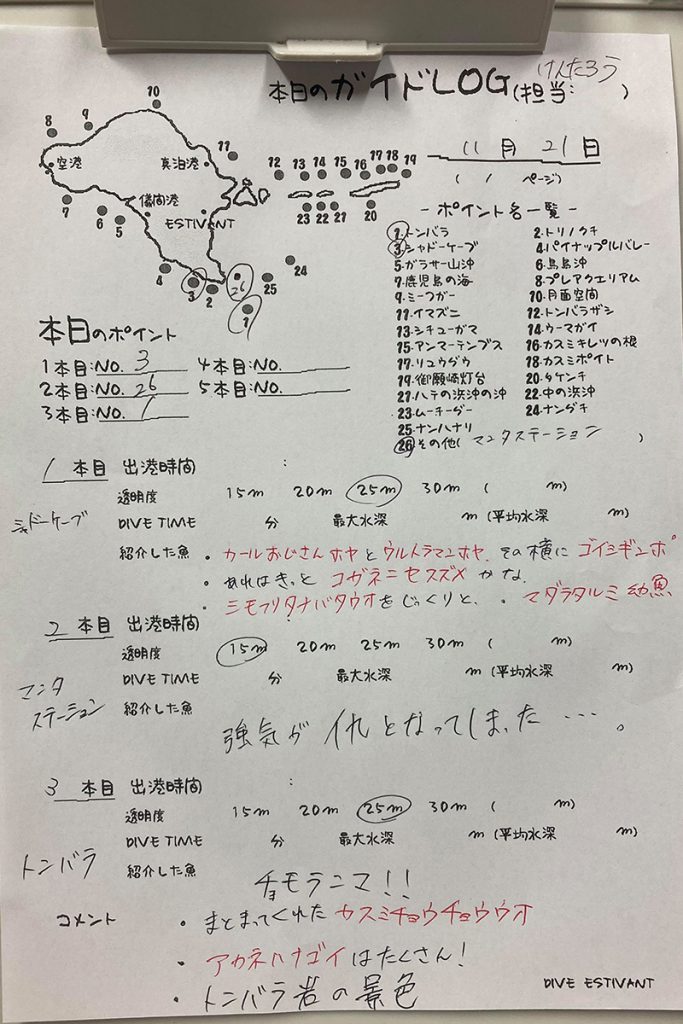 本日のガイドLOG(担当: けんたろう )
11月 21日
( 1 ページ)
10
8
9
空港
真泊港
11
12
13
14
15
16
17
18
19
7
6
5
儀間港
ESTIVANT
23
22
21
20
4
3
2
26
25
24
1
- ポイント名一覧 -
1.トンバラ 2.トリノクチ
3.シャドーケーブ 4.パイナップルバレー
5.ガラサー山沖 6.鳥島沖
7.鹿児島の海 8.プレアクエリアム
9.ミーフガー 10.月面空間
11.イマズニ 12.トンバラザシ
13.シチューガマ 14.ウーマガイ
15.アンマーテンブス 16.カスミキレツの根
17.リュウグウ 18.カスミポイト
19.御願崎灯台 20.タケンチ
21.ハテの浜沖の沖 22.中の浜沖
23.ムーチーグー 24.ナングキ
25.ナンハナリ
26.その他( マンタステーション )
本日のポイント
1本目:NO. 3 4本目:NO.
2本目:NO. 26 5本目:NO.
3本目:NO. 1
1 本目 出港時間 :
透明度 15m 20m 25m 30m ( m)
シャドーケーブ
DIVE TIME 分 最大水深 m (平均水深 m)
紹介した魚 ・カールおじさんホヤとウルトラマンホヤ. その横に ゴイシギンポ
・あれはきっと コガネニセスズメ かな.
・シモフリタナバタウオをじっくりと、 ・マダラタルミ幼魚
2 本目 出港時間 :
透明度 15m 20m 25m 30m ( m)
DIVE TIME 分 最大水深 m (平均水深 m)
マンタステーション
紹介した魚
強気が仇となってしまった…。
3 本目 出港時間 :
透明度 15m 20m 25m 30m ( m)
DIVE TIME 分 最大水深 m (平均水深 m)
トンバラ
紹介した魚
チョモランマ!!
コメント ・まとまってくれた カスミチョウチョウウオ
・アカネハナゴイはたくさん!
・トンバラ岩の景色
DIVE ESTIVANT